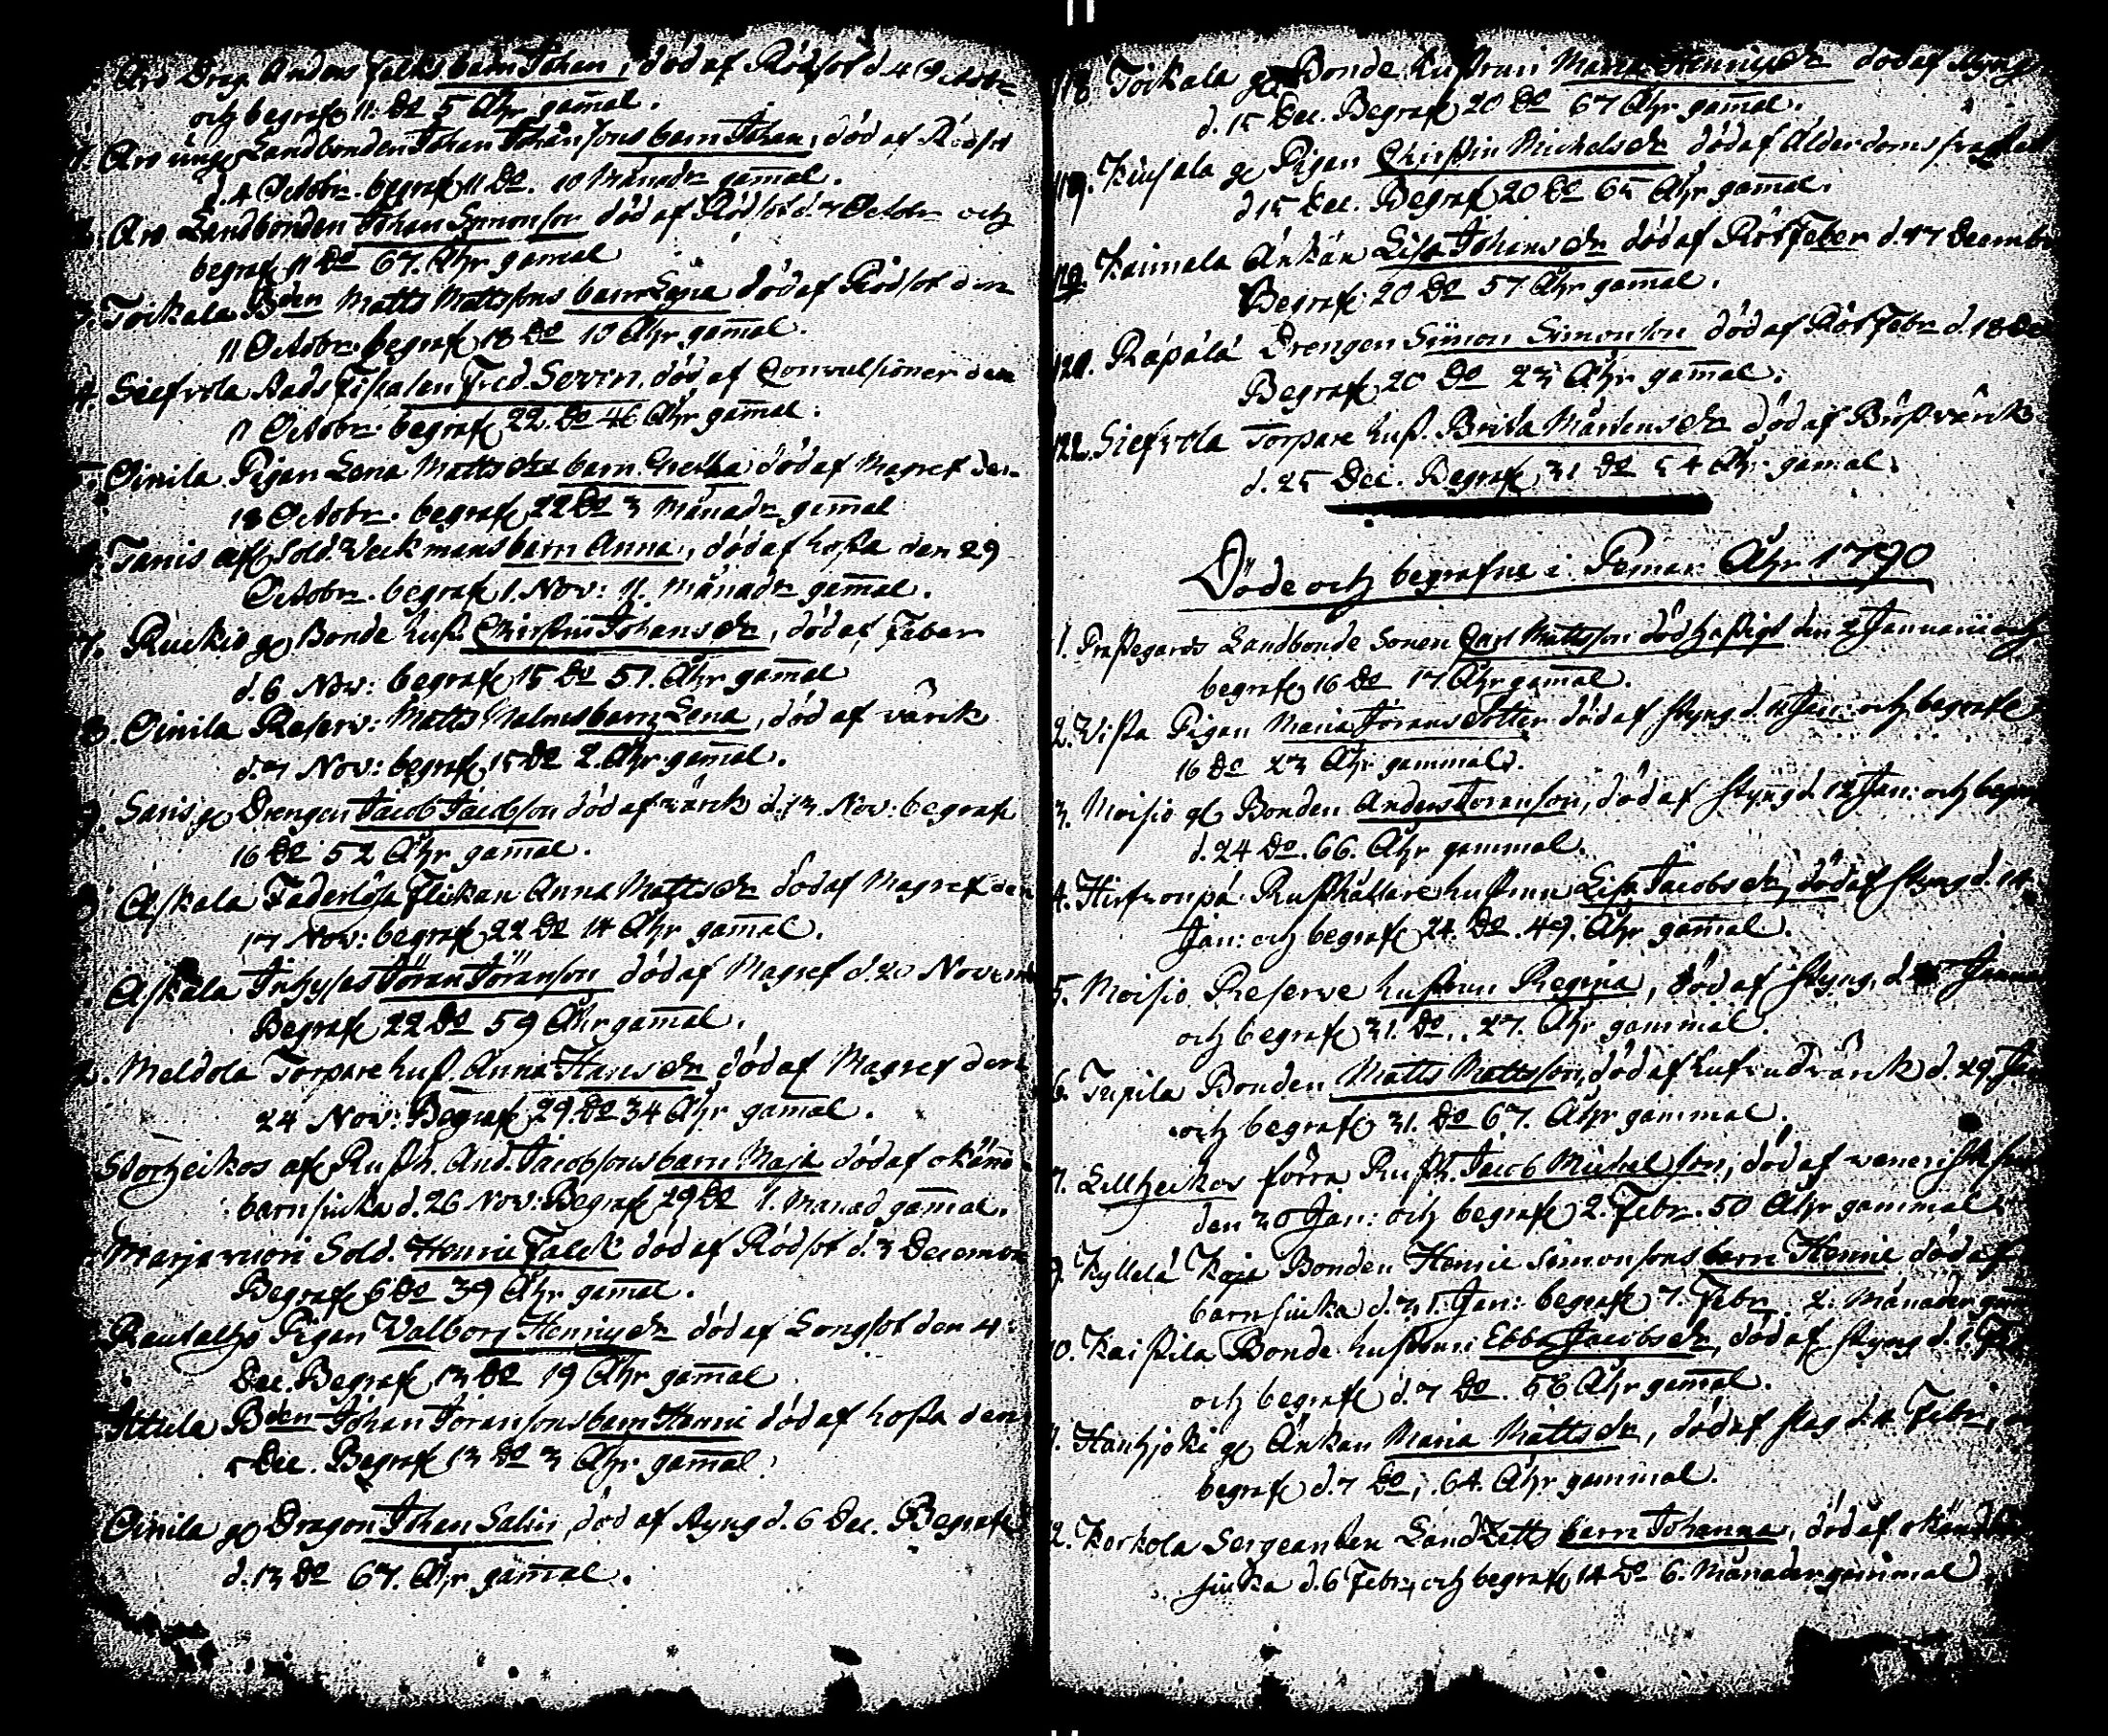 Aro Drag. Anders Falks barn Johan, död af Rödsot d. 4 Octobr
och begrafe 11. Do 5 Åhr gamal.
Aro unge Landbonden Johan Johansons barn Johan, död af Rödsot
d. 4 Octobr. begrafe 11 Do. 10 Månadr gamal.
Aro Landbonden Johan Simonson död af Rödsot d. 7 Octobr och
begrafe 11 Do 67. Åhr gamal
Toikala Bden Matts Mattsons barn Lena död af Rödsot den
11 Octobr. begrafe 18 Do 10 Åhr gamal.
4. Siefvola Fred. Sevin, död af Convulsioner den
Octobr. begrafe 22. Do 46 Åhr gamal.
Oinila Pigan Lena Matts drs barn död af Magref den
18 Octobr. begrafe 22 Do 3 Månadr gamal
Tanis afsk Sold. Veckmans barn Anna, död af hosta den 29
Octobr. begrafe 1. Nov: 11. Månadr gamal.
7. Ruckio ge Bonde hust. Christin Johans dr, död af Feber
d. 6 Nov: begrafe 15 Do 51. Åhr gamal
8. Oinila Reserv: Matts Malms barn Lena, död af värck
d. 7 Nov: begrafe 15 Do 2. Åhr gamal.
9. Saris ge Drengen Jacob Jacobson död af värck d. 13. Nov: begrafe
16 Do 52 Åhr gamal.
Askala Faderlösa Flickan Anna Matts dr död af Magref den
17 Nov: begrafe 22 Do 14 Åhr gamal.
Askala Inhyses Jöran Jöranson död af Magref d. 20 Novemb
Begrafe 22 Do 59 Åhr gamal.
2. Meldola Torpare hust. Anna Hans dr död af Magref den
24 Nov: Begrafe 29. Do 34 Åhr gamal.
Storheikos afsk Rusth. And. Jacobsons barn Maja död af okänd
barnsiuka d. 26 Nov: Begrafe 29 Do 1. Manad gamal.
Marjavuori Sold. Henric Falck död af Rödsot d. 3 December
Begrafe 6 Do 39 Åhr gamal.
Rautalho Pigan Walborg Henrics dr död af Longsot den 4
Dec. Begrafe 13 Do 19 Åhr gamal
Attula Bden Johan Joransons barn Henric död af hosta den
5 Dec. Begrafe 13 Do 3 Åhr gamal.
Oinila ge Dragon Johan Salin, död af styng d. 6 Dec. Begrafe
d. 13 Do 67. Åhr gamal.
118. Toikala ge Bonde hustrun Maria Henrics dr död af styng
d. 15 Dec. Begrafe 20 Do 67 Åhr gamal.
119. Keusala ge Pigan Christin Michels dr död af Ålderdoms
d 15 Dec. Begrafe 20 Do 65 Åhr gamal.
120. Kaimala Änkan Lisa Johans dr död af Röt Feber d. 17 Decembr
Begrafe 20 Do 57 Åhr gamal.
121. Räpälä Drengen Simon Simonson död af Röt Febr d. 18 Dec
Begrafe 20 Do 23 Åhr gamal.
122. Siefvola Torpare hust. Brita Mårtens dr död af Bröstvärck
d. 25 Dec. Begrafe 31 Do 54 Åhr gamal.
Döde och begrafne i Pemar Åhr 1790
1. Prästegårds Landbonde Sonen Carl Mattsson död hastigt den 2 Januarii och
begrafe 16 Do 17 Åhr gamal.
2. Wista Pigan Maria Jörans dotter död af styng d. 12 Jan: och begrafe
16 Do 23 Åhr gammal.
3. Moisio ge Bonden Anders Joranson, död af styng d. 12 Jan: och begra
d. 24 Do. 66. Åhr gammal.
4. Hirfvonpä Rusthållare hustrun Lisa Jacobs dr, död af styng d. 14
Jan: och begrafe 24. Do. 49. Åhr gamal.
5. Moisio Reserve hustrun Regina, död af styng, d. Janua
och begrafe 31. Do.. 27. Åhr gammal.
6. Tupila Bonden Matts Mattsson, död af hufvudvärck d. 29 Jan
och begrafe 31. Do 67. Åhr gammal.
7. Lillheikos förra Rusth. Jacob Michelson, död af venerisk
den 30 Jan: och begrafe 2. Febr. 50 Åhr gammal.
9. Kyllelä Bonden Henric Simonsons barn Henric död af
barnsiuka d. 31. Jan: begrafe 7. Febr. 2. Månader gam
10. Kaistila Bonde hustrun Ebba Jacobs dr, död af styng d. 1. Feb
och begrafe d. 7 Do. 56 Åhr gamal.
11. Hanhjoki ge Änkan Maria Matts dr, död af slag d. 2. Febr,
begrafe d. 7 Do, 64. Åhr gammal.
12. Korkola Sergeanten barn Johanna, död af okänd
siuka d. 6 Febr, och begrafe 14 Do 6. Månader gammal